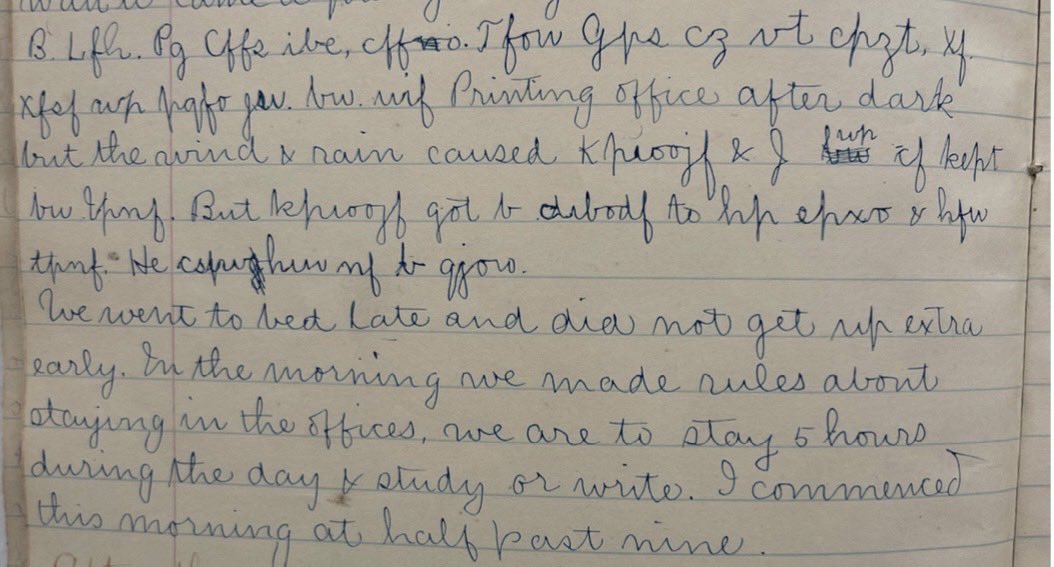 B. Lfh. Pg Cffs ibe, cffo. Tfou Gps cz vt cpzt. Xf.
xfsf up pqfo ju. bu. uif Printing office after dark
but the wind & rain caused Kpioojf & J up cf kept
bu Ipnf. But kpioojf got b dibodf to hp epxo & hfu
tpnf. He cspvhiu nf b qjou.
We went to bed late and did not get up extra
early. In the morning we made rules about
staying in the offices, we are to stay 5 hours
during the day & study or write. I commenced
this morning at half past nine.